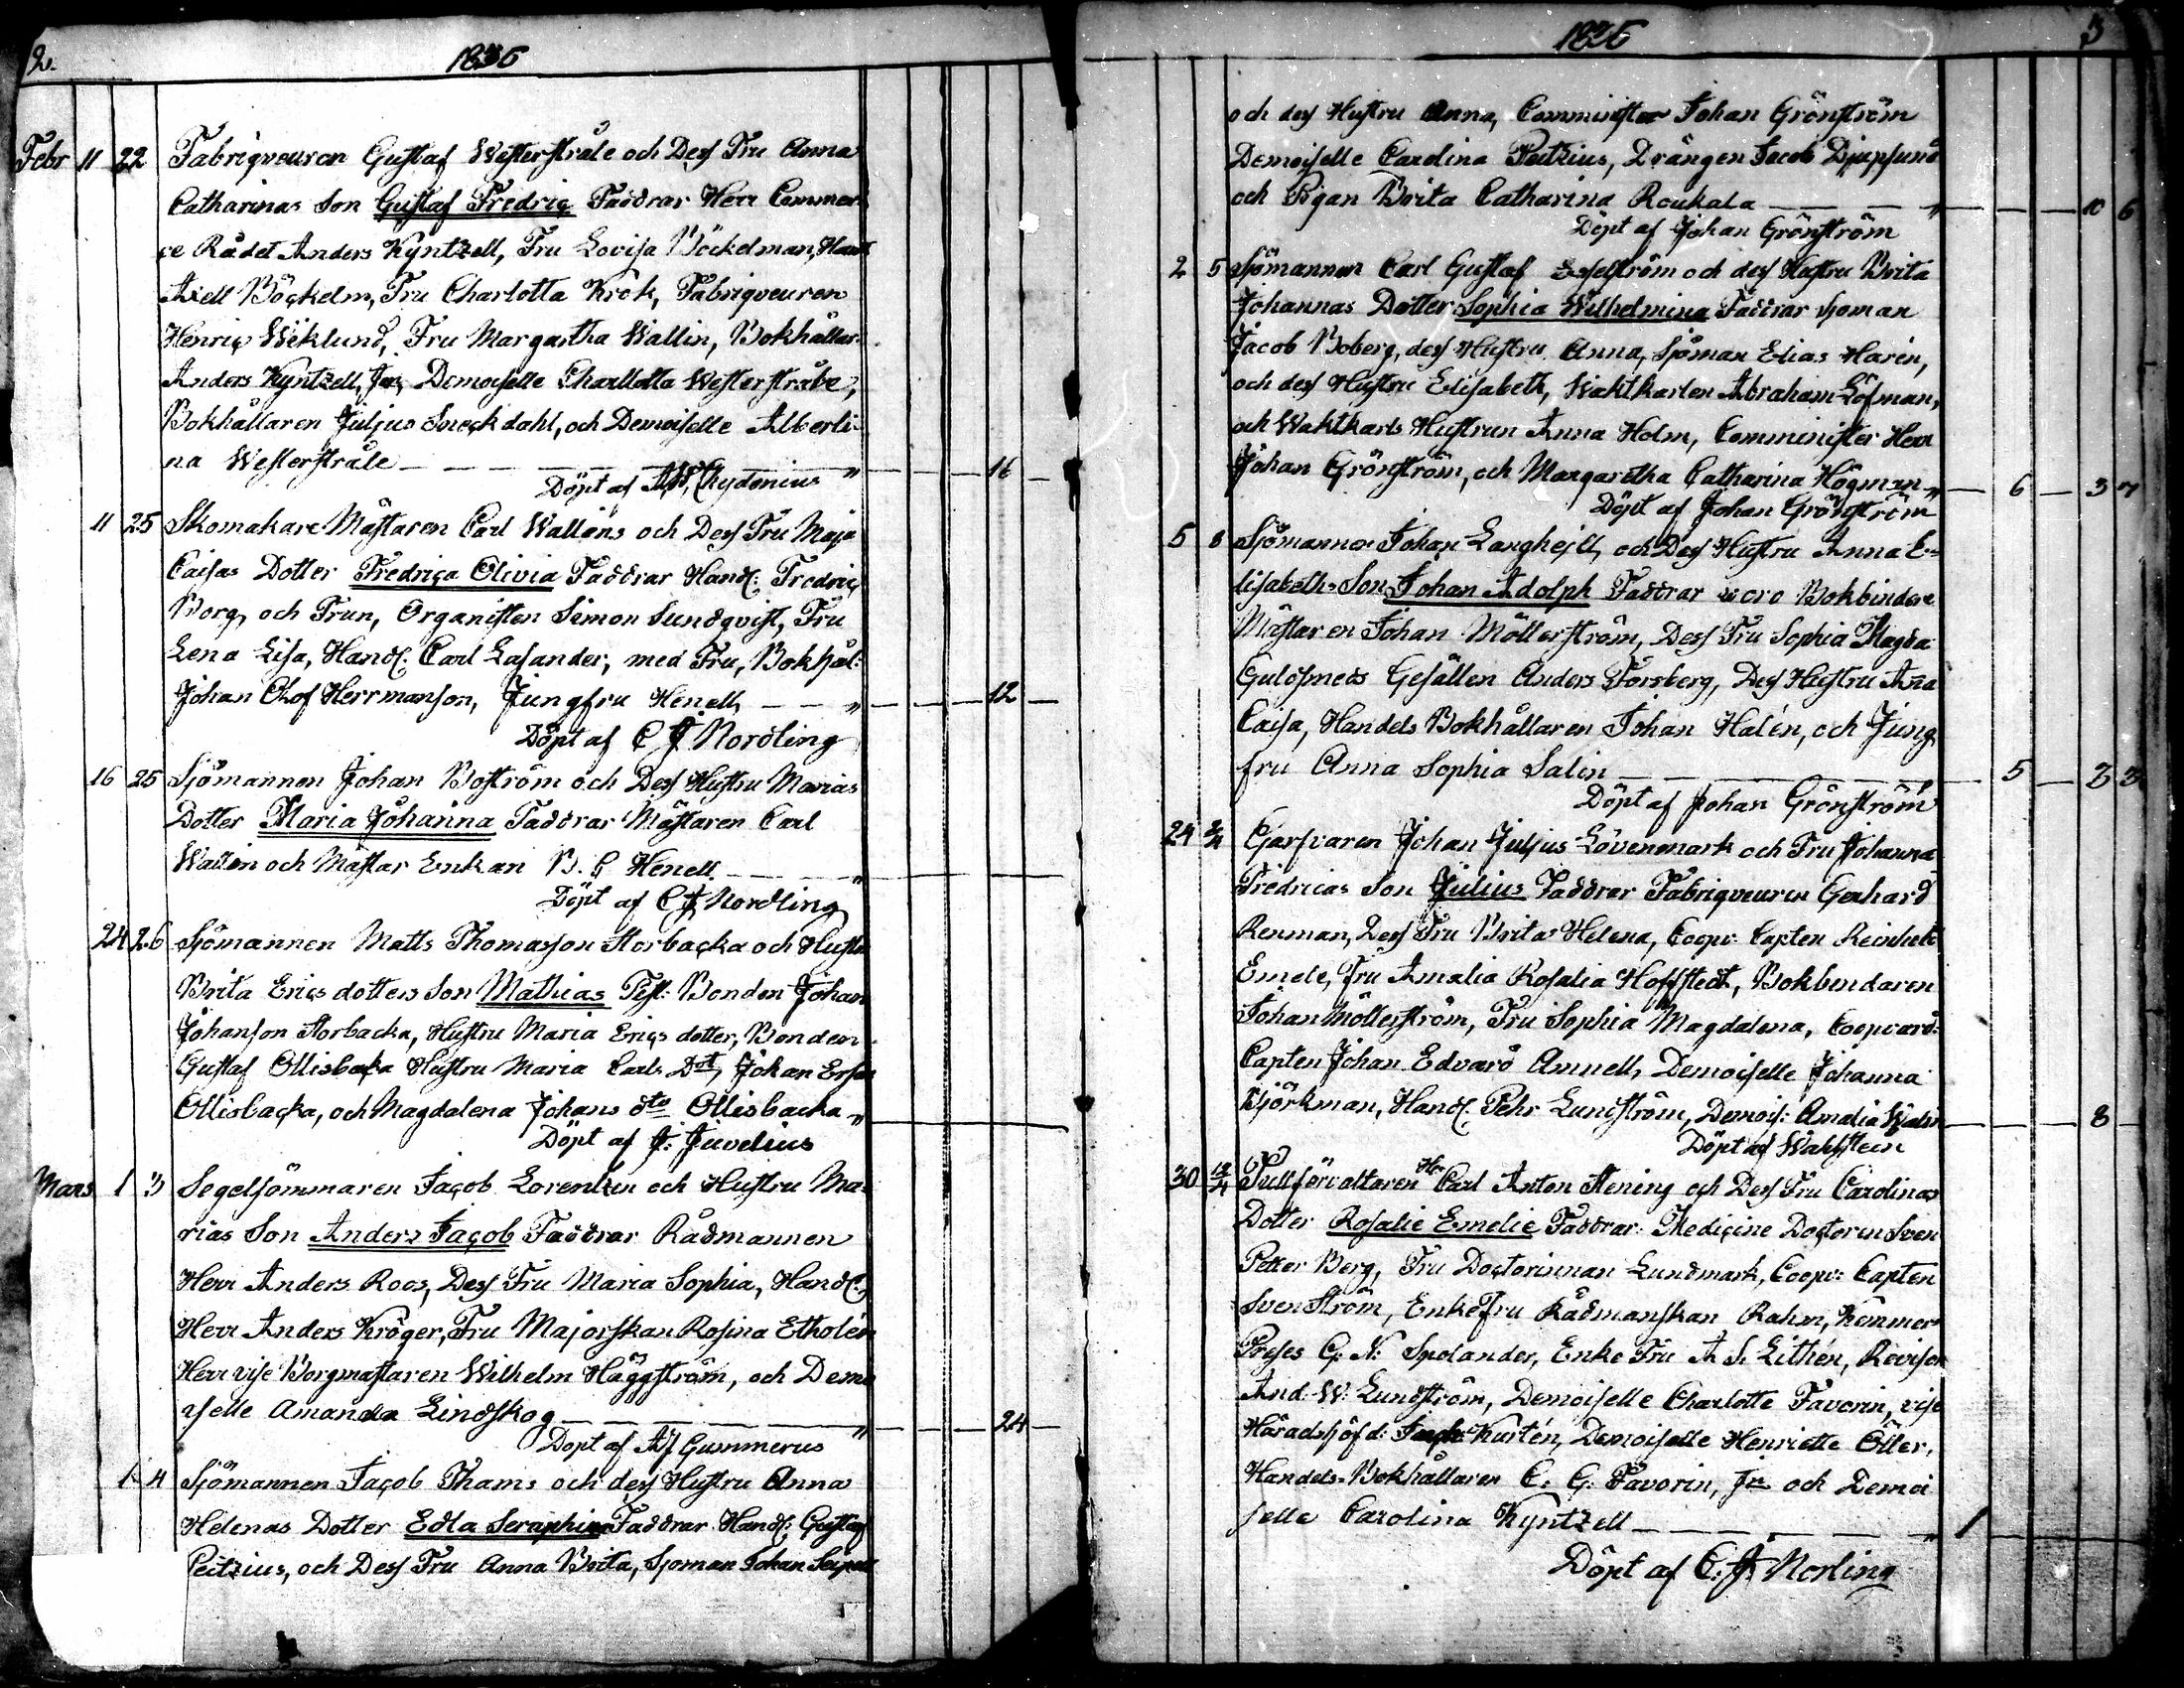 2.
1836
Febr 11 22 Fabriqveuren Gustaf Westerstråle och Dess Fru Anna
Catharinas Son Gustaf Fredric Faddrar Herr Commer
ce Rådet Anders Kyntzell, Fru Lovisa Böckelman,
Axell Böckelm, Fru Charlotta Krok, Fabriqveuren
Henric Wiklund, Fru Margartha Wallin, Bokhållar
Anders Kyntzell, Demoiselle Charllotta Westerstråle,
Bokhållaren Juljus Sneckdahl, och Demoiselle Alberti
na Westerstråle — — — " — 16 —
Döpt af Chydenius
11 25 Skomakare Mästaren Carl Walléns och Dess Fru Maja
Caisas Dotter Fredrica Olivia Faddrar Handl: Fredric
Borg, och Frun, Organisten Simon Sundqvist, Fru
Lena Lisa, Handl: Carl Lasander, med Fru, Bokhål:
Johan Olof Herrmanson, Jungfru Henell, — — " — 12 —
Döpt af C J Nordling
16 25 Sjömannen Johan Boström och Dess Hustru Marias
Dotter Maria Johanna Faddrar Mästaren Carl
Wallén och Mästar Enkan B. G Henell — "
Döpt af C J Nordling
24 26 Sjömannen Matts Thomasson Storbacka och Hustru
Brita Erics dotters Son Mathias Test: Bonden Johan
Johanson Storbacka, Hustru Maria Erics dotter, Bonden
Gustaf Ollisbacka Hustru Maria Carls Dtr, Johan Erson
Ollisbacka, och Magdalena Johans dtr Ollisbacka "
Döpt af J: Juvelius
Mars 1 3 Segelsömmaren Jacob Lorentzen och Hustru Ma-
rias Son Anders Jacob Faddrar Rådmannen
Herr Anders Roos, Dess Fru Maria Sophia, Handl:
Herr Anders Kröger, Fru Majorskan Rosina Etholén
Herr vise Borgmastaren Wilhelm Häggström, och Demo
iselle Amanda Lindskog — — — " — 24 —
Döpt af Gummerus
1 4 Sjömannen Jacob Thams och dess Hustru Anna
Helenas Dotter Edla Seraphina Faddrar Handl: Gustaf
Peitzius, och Dess Fru Anna Brita, Sjöman Johan
1836
3
och dess Hustru Anna, Comminister Johan Grönström
Demoiselle Carolina Peitzius, Drängen Jacob Djupsund
och Pigan Brita Catharina Roukala — — — " — 10 6
Döpt af Johan Grönström
2 5 Sjömannen Carl Gustaf och dess Hustru Brita
Johannas Dotter Sophia Wilhelmina Faddrar sjöman
Jacob Boberg, dess Hustru Anna, Sjöman Elias Harin,
och dess Hustru Elisabeth, Waktkarlen Abraham Löfman,
och Waktkarls Hustrun Anna Holm, Comminister Herr
Johan Grönström, och Margaretha Catharina Högman " — 6 — 3 7
Döpt af Johan Grönström
5 8 Sjömannen Johan Langhejll, och Dess Hustru Anna E-
lisabeths Son Johan Adolph Faddrar woro Bokbindare
Mästaren Johan Möllerström, Dess Fru Sophia Magda
Guldsmeds Gesällen Anders Forsberg, Dess Hustru Ana
Caisa, Handels Bokhållaren Johan Halén, och Jung
fru Anna Sophia Salin — — — " — 5 — 3 3
Döpt af Johan Grönström
24 2/4 Garfvaren Johan Juljus Lövenmark och Fru Johanna
Fredricas Son Julius Faddrar Fabriqveuren Gerhard
Renman, Dess Fru Brita Helena, Coopv: Capten
Fru Amalia Rosalia Hoffstedt, Bokbindaren
Johan Möllerström, Fru Sophia Magdalena, Coopvard:
Capten Johan Edvard Amnell, Demoiselle Johanna
Björkman, Handl: Pehr Lundström, Demois: Amalia — 8
Döpt af Wahlstein
30 12/4 Tullförvaltaren Hr Carl Anton Stening och Dess Fru Carolinas
Dotter Rosalie Emelie Faddrar: Medicine Doctoren Sven
Petter Berg, Fru Doctorinnan Lundmark, Coopv: Capten
Sven Ström, Enkefru Rådmanskan Rahm, Kemmer
Preses G: N: Snolander, Enke Fru A S. Lithén, Revisor
And: W: Lundström, Demoiselle Charlotte Favorin, vise
Häradshöfd: Kurtén, Demoiselle Henriette Öller,
Handels-Bokhållaren C: G: Favorin, Jr och Demoi
selle Carolina Kyntzell — — — " 1
Döpt af C. J. Norling